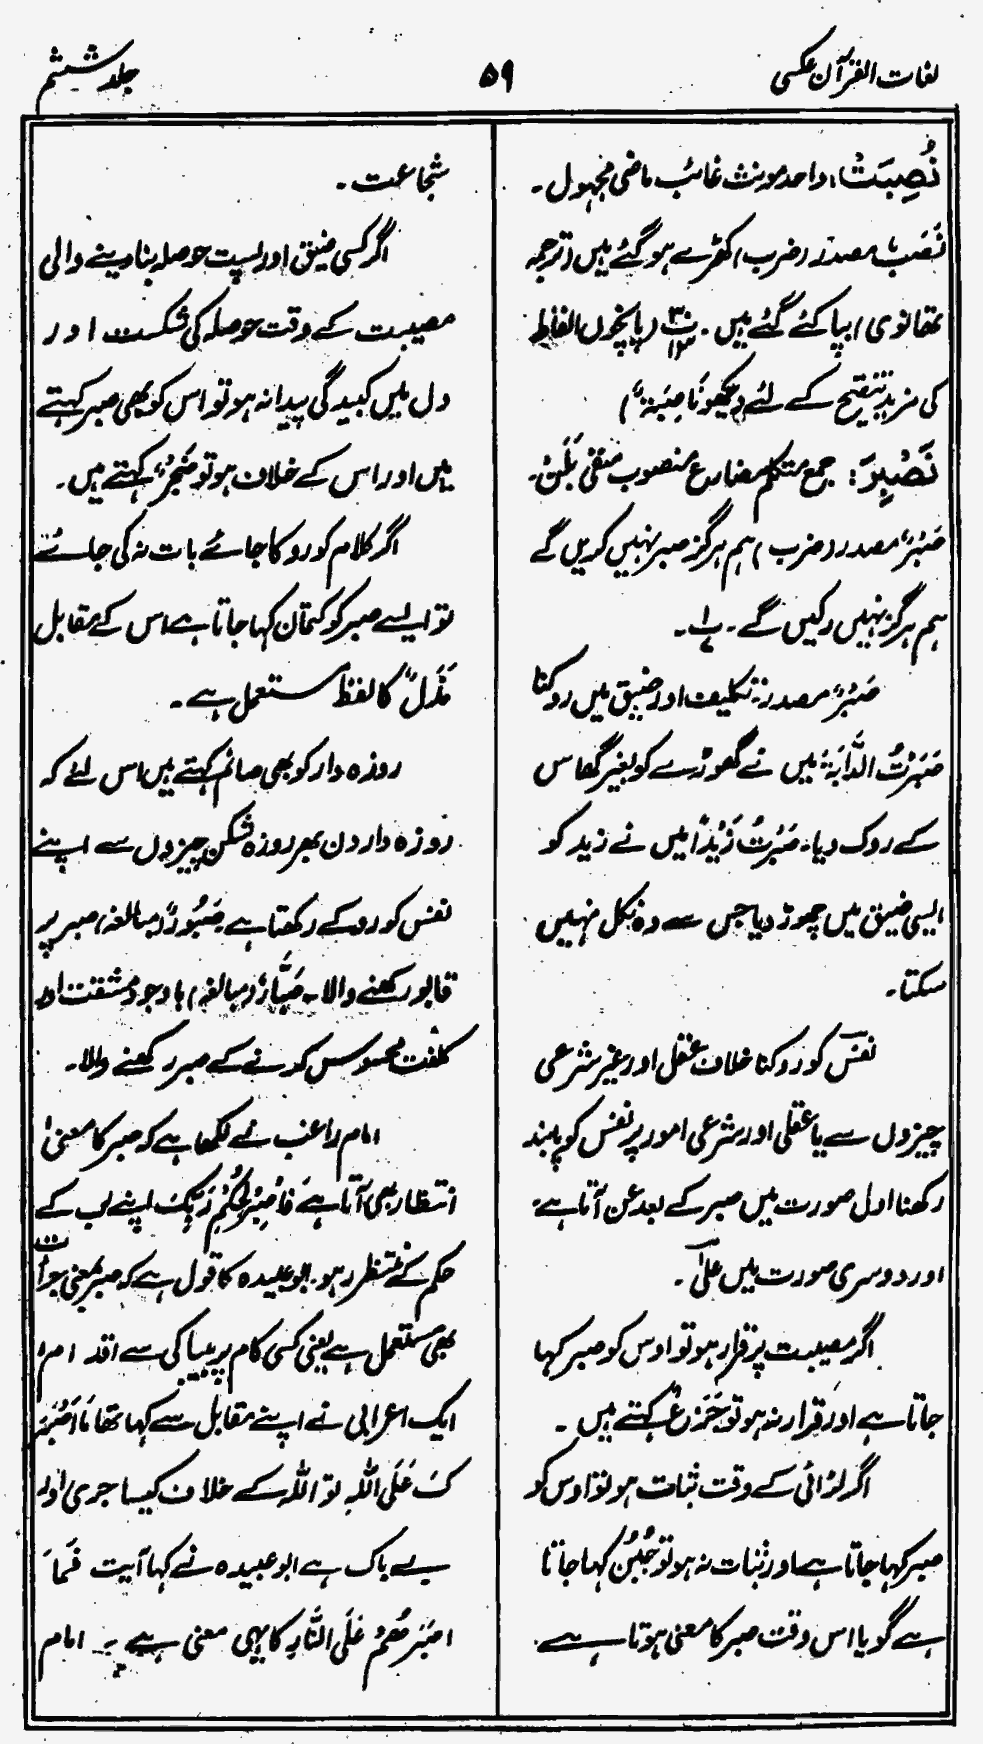 لغات القرآن عکسی
۵۹
جلد ششم
نُصِبَتْ: واحد مونث غائب ماضی مجہول۔
نَصَبٌ مصدر (ضرب) کھڑے ہو گئے ہیں (ترجمہ
تھانوی) بپا کئے گئے ہیں۔ (پانچوں الفاظ
کی مزید تنقیح کے لئے دیکھو نَاصِبَۃٌ)
نَصْبِرَ: جمع متکلم مضارع منصوب منفی بلَنْ۔
صَبْرٌ مصدر (ضرب) ہم ہرگز صبر نہیں کریں گے
ہم ہرگز نہیں رکیں گے۔ پ۱۔
صَبْرٌ مصدر: تکلیف اور ضیق میں روکنا
صَبَرْتُ الدَّابَۃَ میں نے گھوڑے کو بغیر گھاس
کے روک دیا۔ صَبَرْتُ زَیْدًا میں نے زید کو
ایسی ضیق میں چھوڑ دیا جس سے وہ نکل نہیں
سکتا۔
نفس کو روکنا خلاف عقل اور غیر شرعی
چیزوں سے یا عقلی اور شرعی امور پر نفس کو پابند
رکھنا اول صورت میں صبر کے بعد عن آتا ہے
اور دوسری صورت میں علیٰ۔
اگر مصیبت پر قرار ہو تو اوس کو صبر کہا
جاتا ہے اور قرار نہ ہو تو جَزَعٌ کہتے ہیں۔
اگر لڑائی کے وقت ثبات ہو تو اوس کو
صبر کہا جاتا ہے اور ثبات نہ ہو تو جُبُنٌ کہا جاتا
ہے گویا اس وقت صبر کا معنی ہوتا ہے
شجاعت۔
اگر کسی ضیق اور پست حوصلہ بنا دینے والی
مصیبت کے وقت حوصلہ کی شکست اور
دل میں کبیدگی پیدا نہ ہو تو اس کو بھی صبر کہتے
ہیں اور اس کے خلاف ہو تو ضَجْرٌ کہتے ہیں۔
اگر کلام کو روکا جائے بات نہ کی جائے
تو ایسے صبر کو کتمان کہا جاتا ہے اس کے مقابل
مَذَلٌ کا لفظ مستعمل ہے۔
روزہ دار کو بھی صائم کہتے ہیں اس لئے کہ
روزہ دار دن بھر روزہ شکن چیزوں سے اپنے
نفس کو روکے رکھتا ہے صَبُوْرٌ (مبالغہ) صبر پر
قابو رکھنے والا۔ صَبَّارٌ (مبالغہ) باوجود مشقت اور
کلفت محسوس کرنے کے صبر رکھنے والا۔
امام راغب نے لکھا ہے کہ صبر کا معنیٰ
انتظار بھی آتا ہے فَاصْبِرْ لِحُکْمِ رَبِّکَ اپنے رب کے
حکم کے منتظر رہو۔ ابو عبیدہ کا قول ہے کہ صبر بمعنی جرأت
بھی مستعمل ہے یعنی کسی کام پر بیباکی سے اقدام
ایک اعرابی نے اپنے مقابل سے کہا تھا مَا اَصْبَرَ
کَ عَلَی اللہِ تو اللہ کے خلاف کیسا جری اور
بے باک ہے ابو عبیدہ نے کہا آیت فَمَا
اَصْبَرَھُمْ عَلَی النَّارِ کا یہی معنی ہے۔ امام